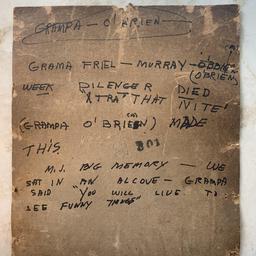 GRAMPA — O'BRIEN
GRAMA FRIEL — MURRAY — O'BRIEN
(O'BRIEN)
WEEK DILENGER DIED
"XTRA" THAT NITE'
(GRAMPA O'BRIEN) MADE
THIS.
301
M.J. BIG MEMORY — WE
SAT IN AN ALCOVE — GRAMPA
SAID "YOU WILL LIVE TO
SEE FUNNY THINGS"